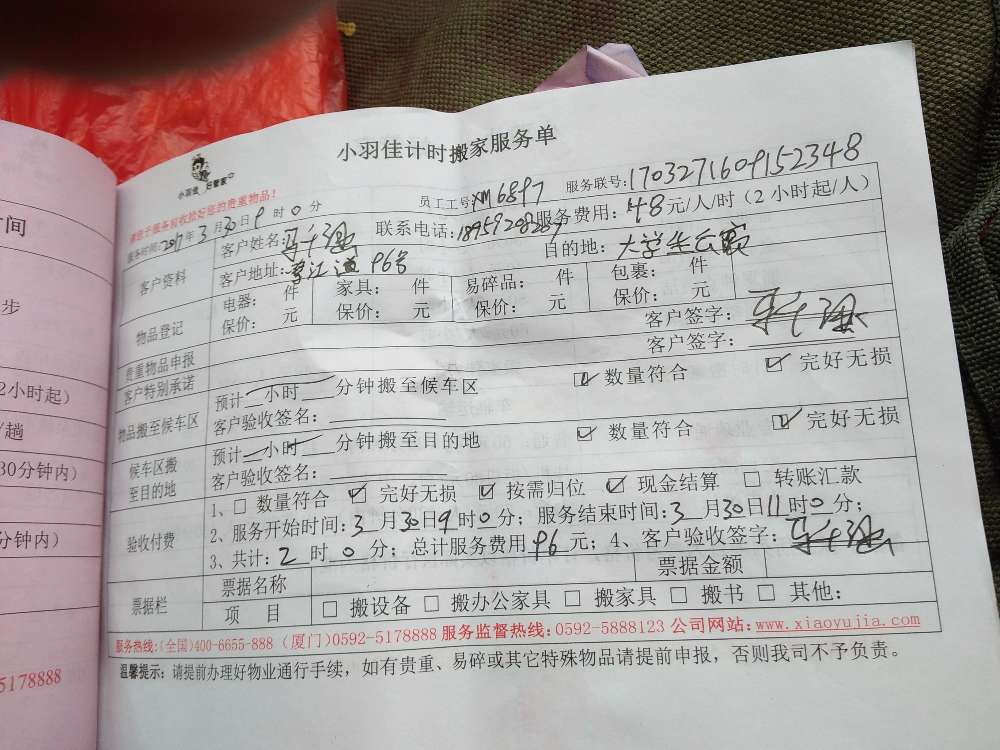 小羽佳 好管家
小羽佳计时搬家服务单
请给予服务前收拾好您的贵重物品!
员工工号:XM6897 服务联号:1703271609152348
服务时间:2017年3月30日9时0分 联系电话:18959208287 服务费用:48元/人/时(2小时起/人)
客户资料
客户姓名:
客户地址: 96号 目的地:大学生公寓
物品登记
电器: 件 家具: 件 易碎品: 件 包裹: 件
保价: 元 保价: 元 保价: 元 保价: 元
贵重物品申报 客户签字:
客户特别承诺 客户签字:
物品搬至候车区
预计 小时 分钟搬至候车区 ☑ 数量符合 ☑ 完好无损
客户验收签名:
候车区搬至目的地
预计 小时 分钟搬至目的地 ☑ 数量符合 ☑ 完好无损
客户验收签名:
验收付费
1、□ 数量符合 ☑ 完好无损 ☑ 按需归位 ☑ 现金结算 □ 转账汇款
2、服务开始时间:3月30日9时0分;服务结束时间:3月30日11时0分;
3、共计:2时0分;总计服务费用96元;4、客户验收签字:
票据栏
票据名称 票据金额
项 目 □ 搬设备 □ 搬办公家具 □ 搬家具 □ 搬书 □ 其他:
服务热线:(全国)400-6655-888 (厦门)0592-5178888 服务监督热线:0592-5888123 公司网站:www.xiaoyujia.com
温馨提示:请提前办理好物业通行手续,如有贵重、易碎或其它特殊物品请提前申报,否则我司不予负责。
时间
步
2小时起)
/趟
30分钟内)
分钟内)
5178888